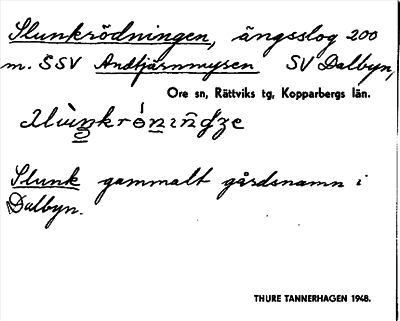 Slunkrödningen, ängsslog 200
m. SSV Andtjärnmysen SV Dalbyn,
Ore sn, Rättviks tg, Kopparbergs län.
Slunk gammalt gårdsnamn i
Dalbyn.
THURE TANNERHAGEN 1948.